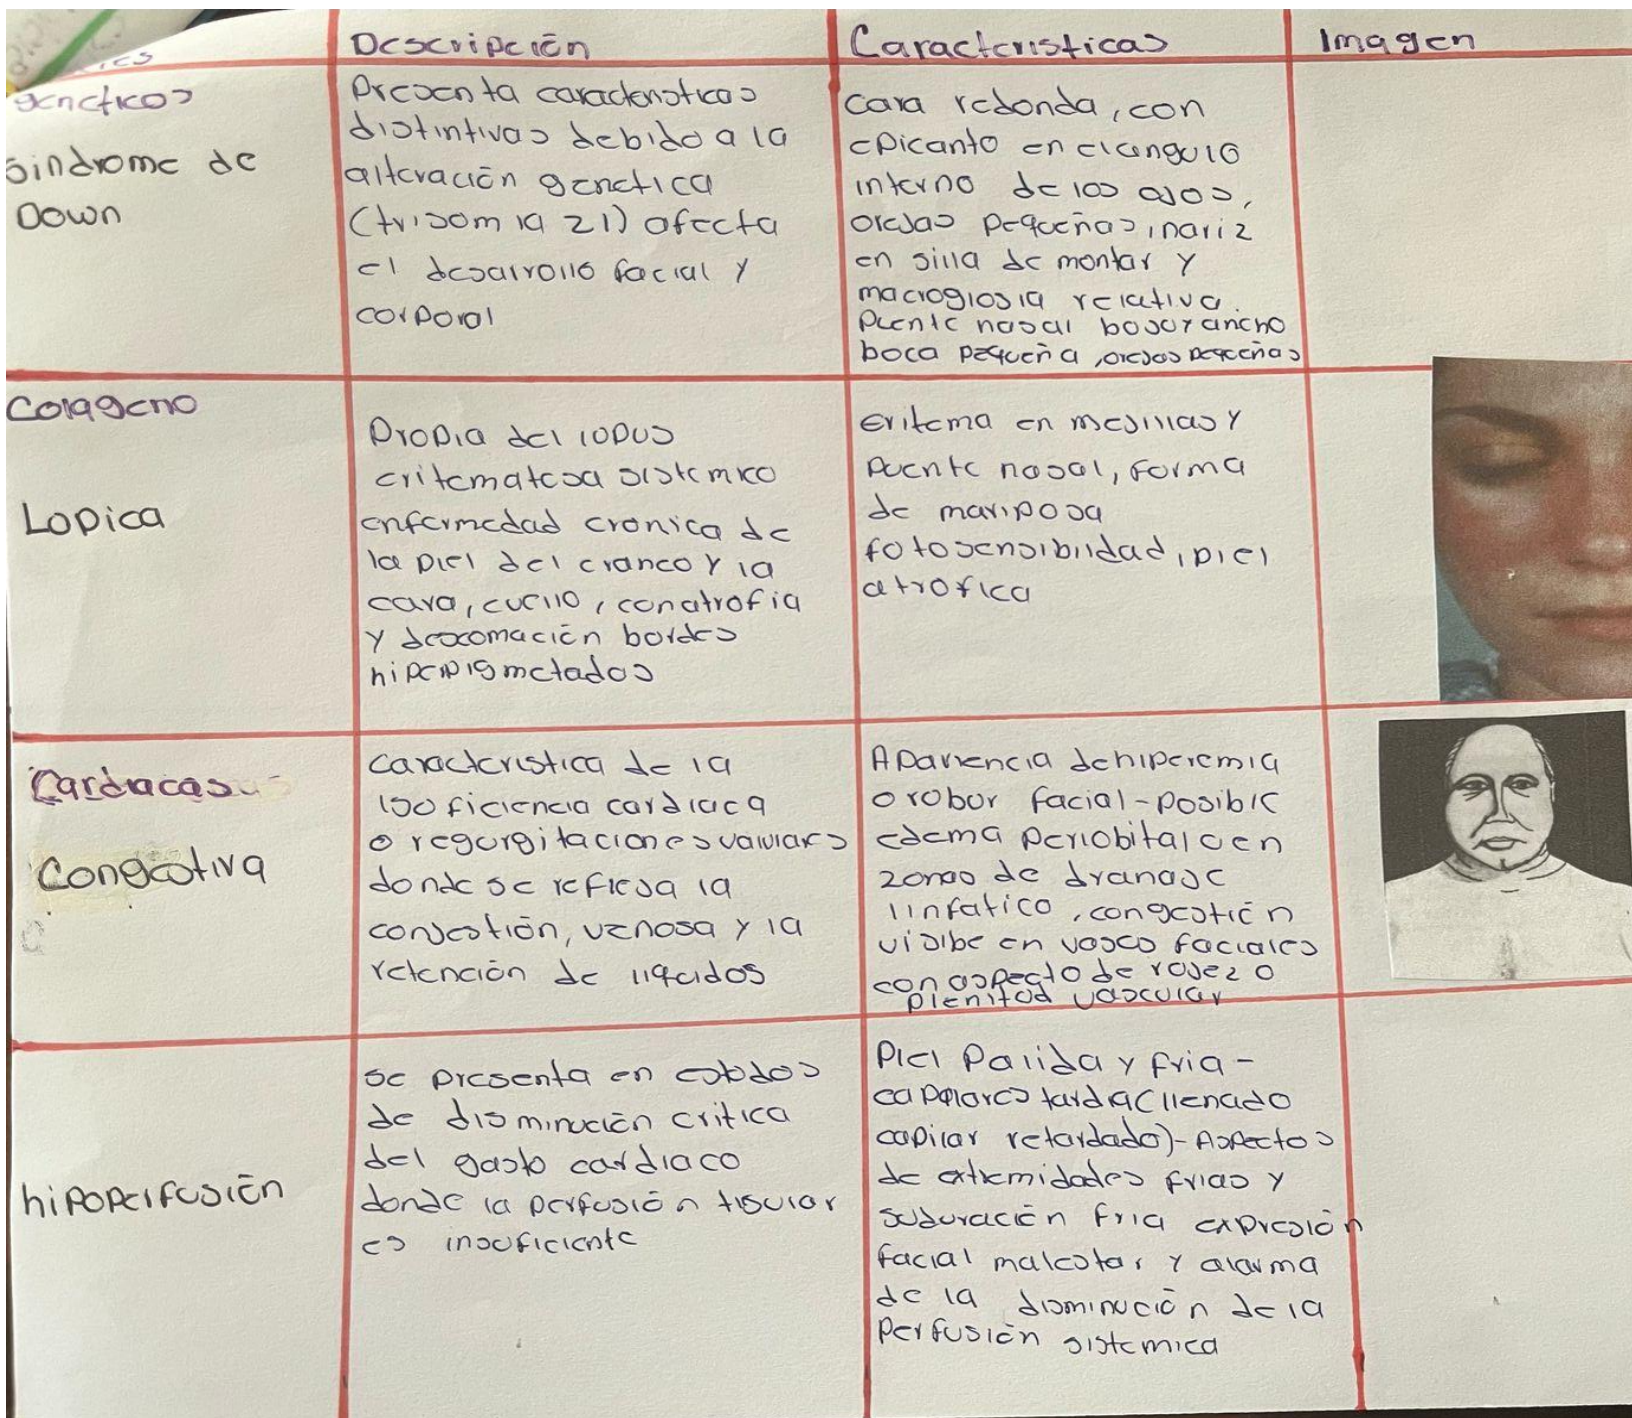 Descripción
Caracteristicas
Imagen
geneticos
Sindrome de
Down
Presenta caracteristicas
distintivas debido a la
alteración genetica
(trisomia 21) afecta
el desarrollo facial y
corporal
cara redonda, con
epicanto en el angulo
interno de los ojos,
orejas pequeñas, nariz
en silla de montar y
macroglosia relativa.
Puente nasal bajo y ancho
boca pequeña, orejas pequeñas
Colageno
Lopica
Propia del lopus
eritematosa sistemico
enfermedad cronica de
la piel del craneo y la
cara, cuello, con atrofia
y descomación bordes
hiperpigmetados
Eritema en mejillas y
puente nasal, forma
de mariposa
fotosensibilidad, piel
atrofica
Cardiacas
Congestiva
caracteristica de la
isoficiencia cardiaca
o regurgitaciones valvulares
donde se refleja la
conjestión, venosa y la
retención de liquidos
Apariencia de hiperemia
o robor facial - posible
edema periobital o en
zonas de dranaje
linfatico, congestión
visibe en vasos faciales
con aspecto de rojez o
plenitud vascular
hipoperfusión
se presenta en estados
de disminución critica
del gasto cardiaco
donde la perfusión tisular
es insuficiente
Piel Palida y fria -
capilares tardia (llenado
capilar retardado) - Aspectos
de extremidades frias y
suduración fria expresión
facial malestar y alarma
de la disminución de la
Perfusión sistemica